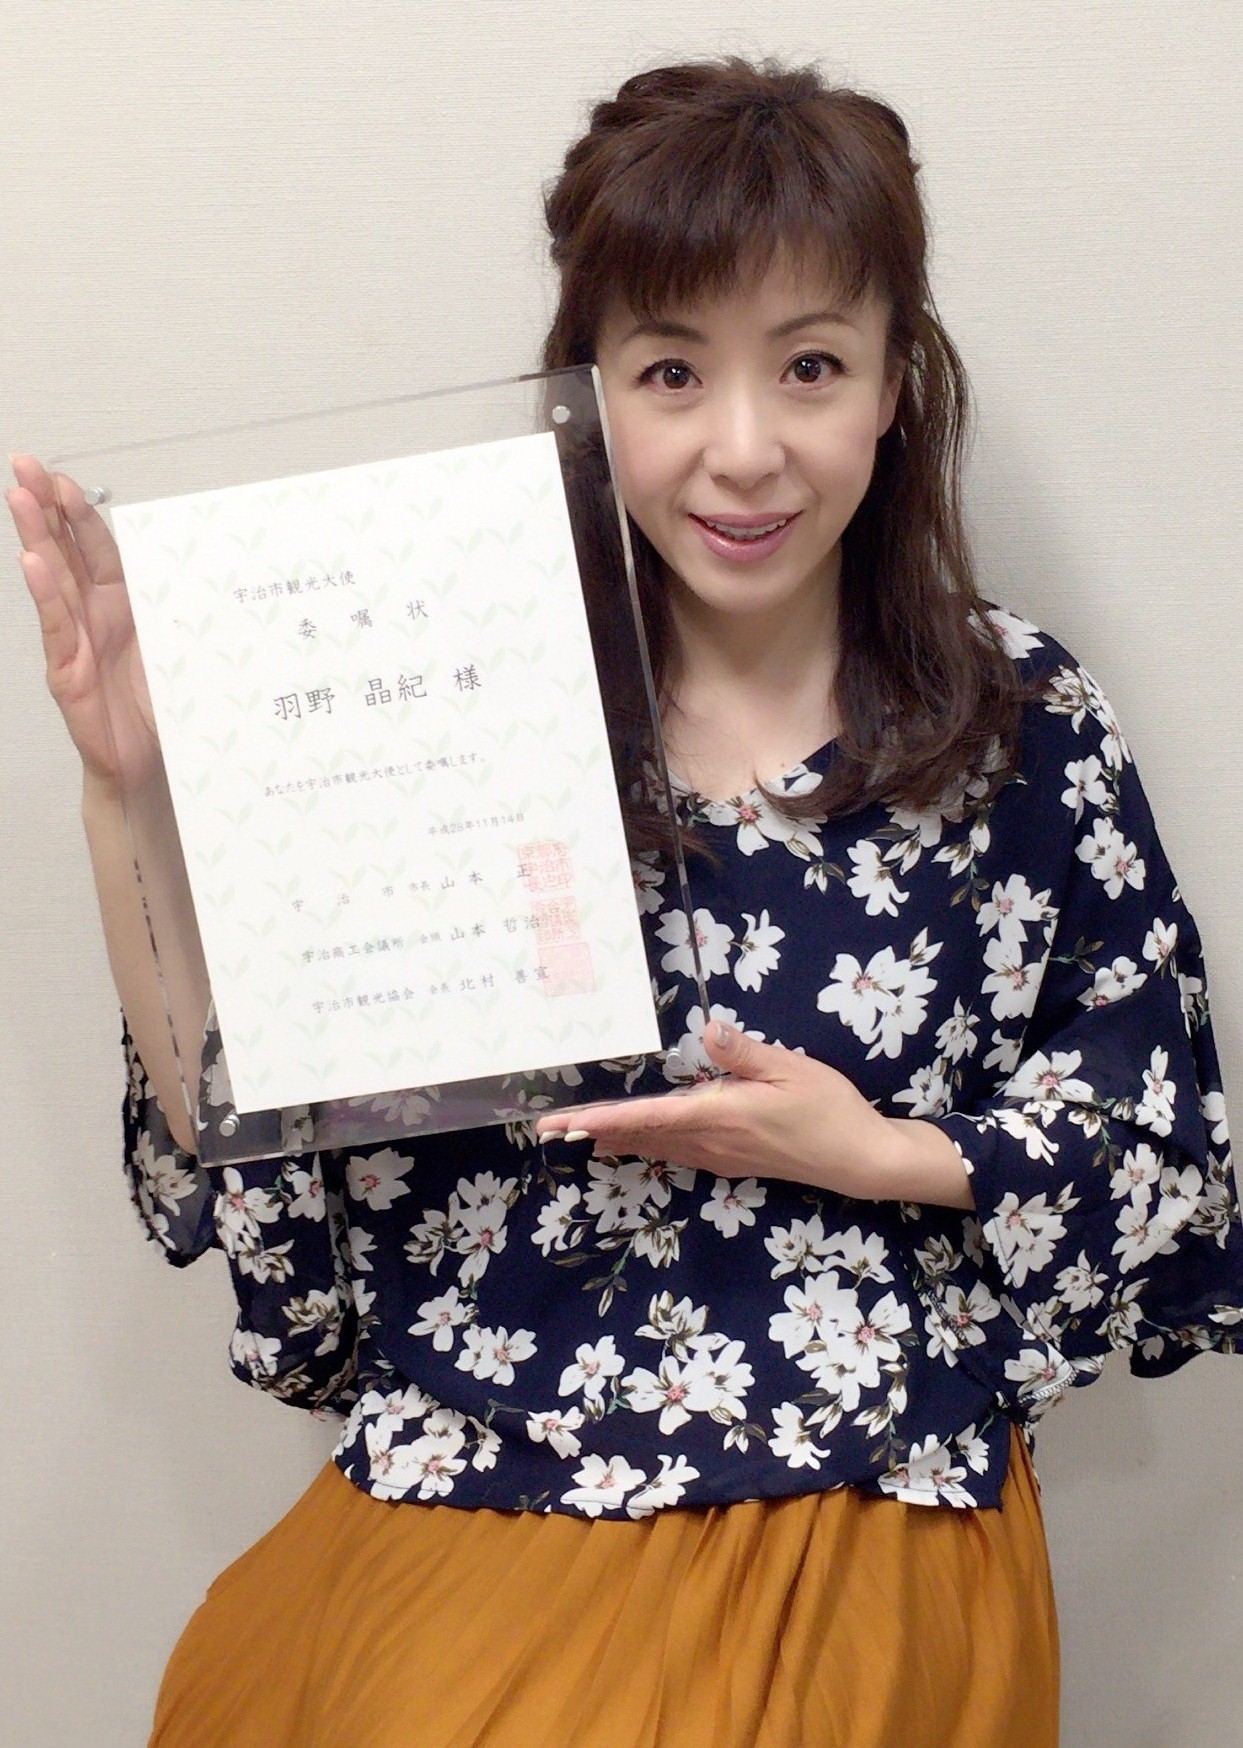 宇治市観光大使
委嘱状
羽野 晶紀 様
あなたを宇治市観光大使として委嘱します。
平成28年11月14日
宇治市 市長 山本 正
宇治商工会議所 会頭 山本 哲治
宇治市観光協会 会長 北村 善宣